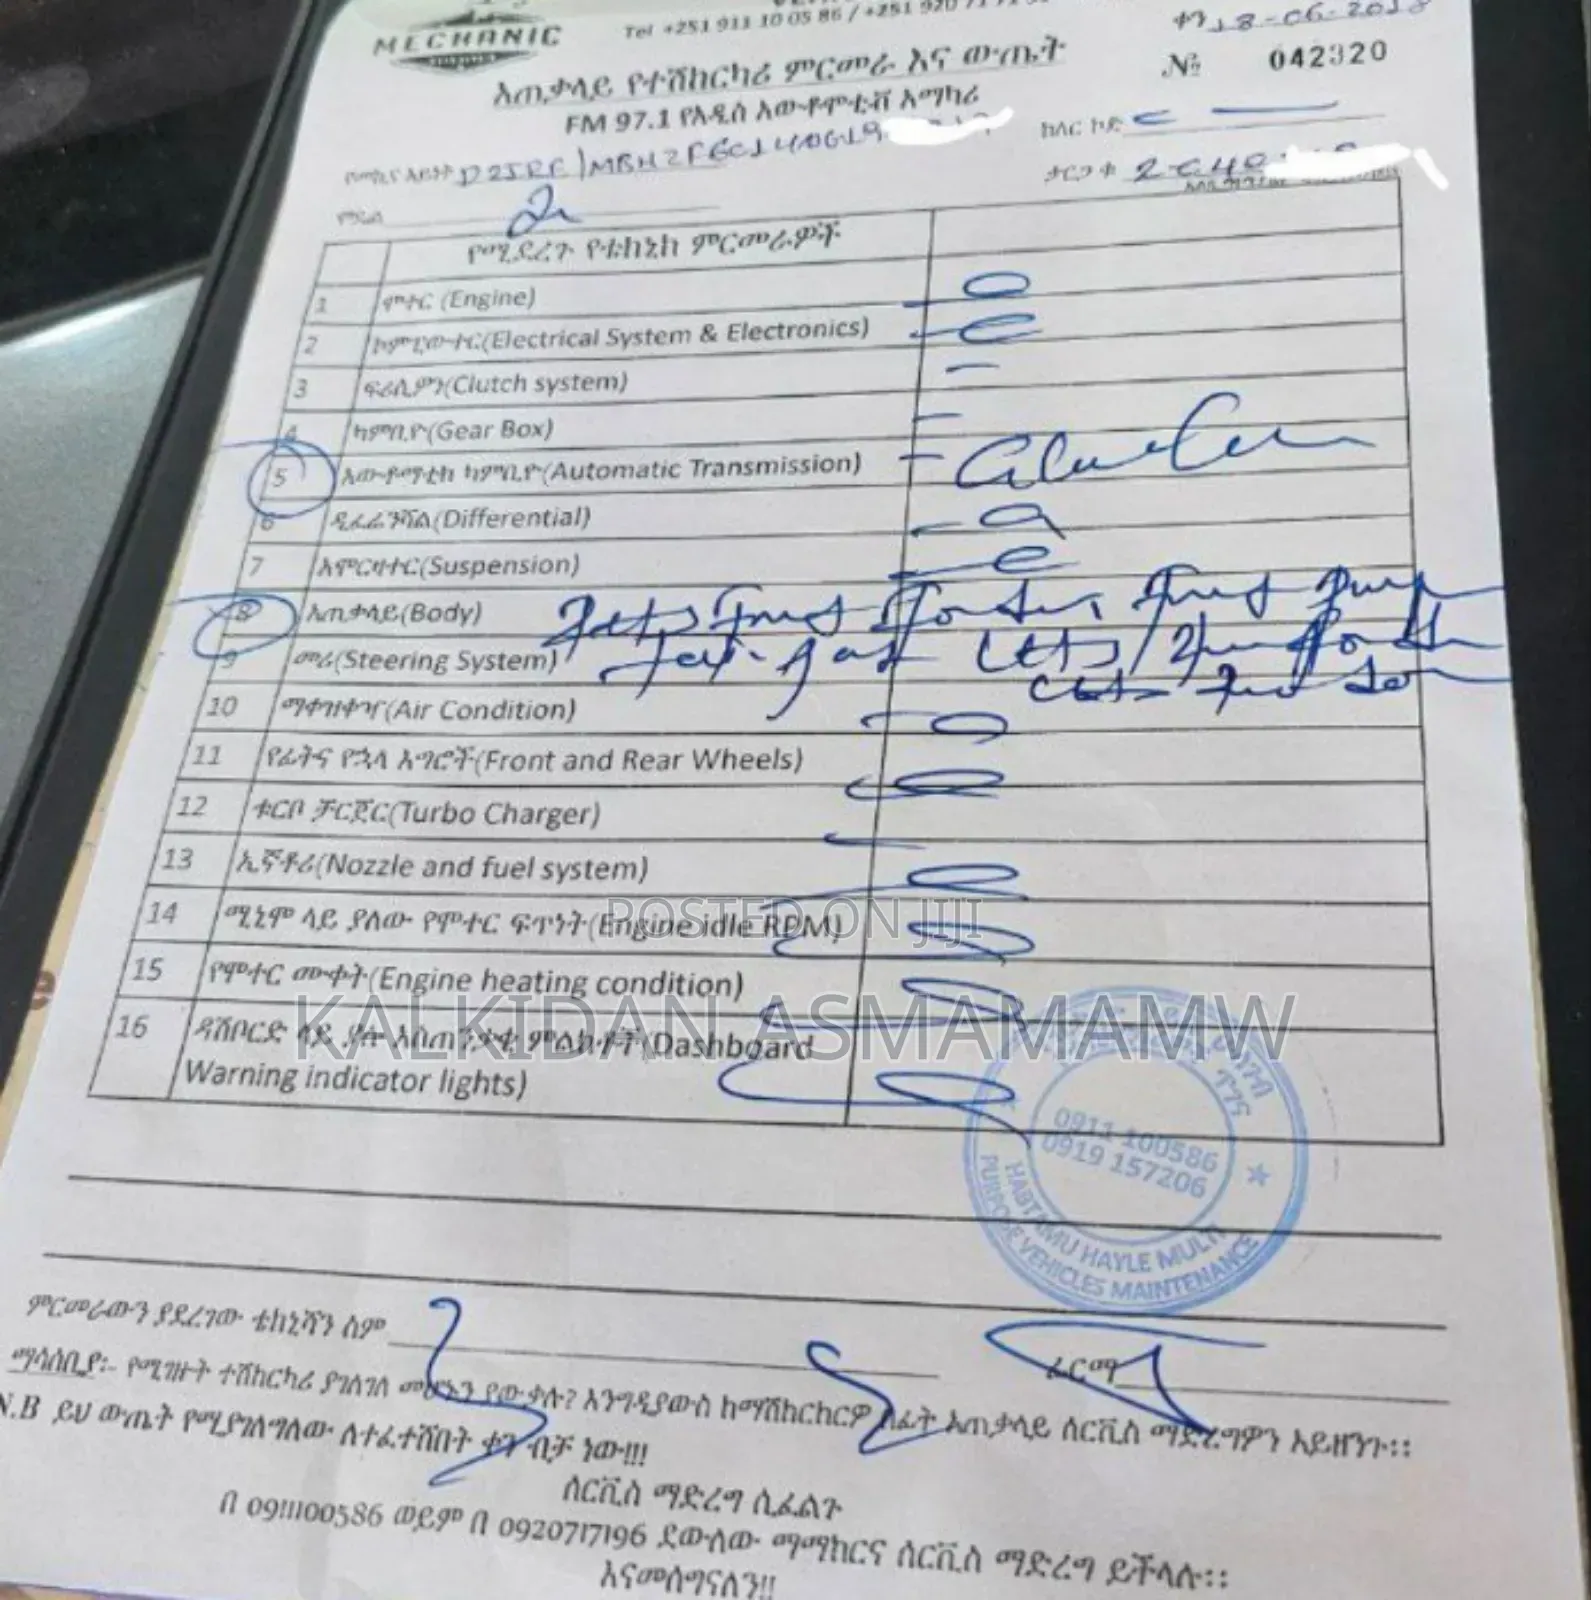 MECHANIC
Tel +251 911 10 05 86 / +251 920 71 71
ቀን 18-06-2018
አጠቃላይ የተሽከርካሪ ምርመራ እና ውጤት
№ 042320
FM 97.1 የአዲስ አውቶሞቲቭ አማካሪ
ከለር ኮድ
D2JRE/MBH2FGC140619
ታርጋ ቁ 2-C40
የሞዴል
የሚደረጉ የቴክኒክ ምርመራዎች
1 ሞተር (Engine)
2 ኮምፒውተር(Electrical System & Electronics)
3 ፍሪሲዮን(Clutch system)
4 ካምቢዮ(Gear Box)
5 አውቶማቲክ ካምቢዮ(Automatic Transmission)
6 ዲፈሬንሻል(Differential)
7 አሞርዛተር(Suspension)
8 አጠቃላይ(Body)
9 መሪ(Steering System)
10 ማቀዝቀዣ(Air Condition)
11 የፊትና የኋላ እግሮች(Front and Rear Wheels)
12 ቱርቦ ቻርጀር(Turbo Charger)
13 ኢኛቶሪ(Nozzle and fuel system)
14 ሚኒሞ ላይ ያለው የሞተር ፍጥነት(Engine idle RPM)
POSTED ON JIJI
15 የሞተር ሙቀት(Engine heating condition)
KALKIDAN ASMAMAMW
16 ዳሽቦርድ ላይ ያሉ አስጠንቃቂ ምልክቶች(Dashboard
Warning indicator lights)
0911 100586
0919 157206
HABTAMU HAYLE MULTI
PURPOSE VEHICLES MAINTENANCE
ምርመራውን ያደረገው ቴክኒሻን ስም
ፊርማ
ማሳሰቢያ፡- የሚገዙት ተሽከርካሪ ያገለገለ መሆኑን ያውቃሉ? እንግዲያውስ ከማሽከርከርዎ በፊት አጠቃላይ ሰርቪስ ማድረግዎን አይዘንጉ፡፡
N.B ይህ ውጤት የሚያገለግለው ለተፈተሸበት ቀን ብቻ ነው!!!
ሰርቪስ ማድረግ ሲፈልጉ
በ 0911100586 ወይም በ 0920717196 ደውለው ማማከርና ሰርቪስ ማድረግ ይችላሉ፡፡
እናመሰግናለን!!